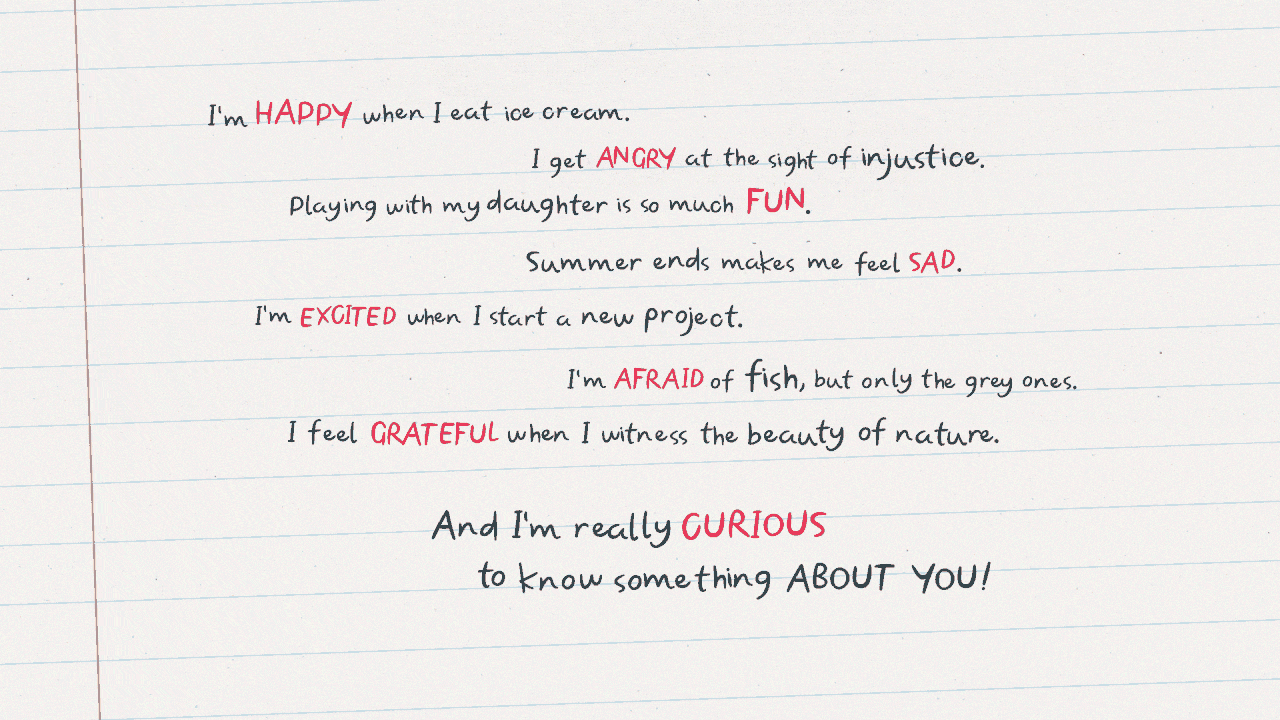 I'm HAPPY when I eat ice cream.
I get ANGRY at the sight of injustice.
Playing with my daughter is so much FUN.
Summer ends makes me feel SAD.
I'm EXCITED when I start a new project.
I'm AFRAID of fish, but only the grey ones.
I feel GRATEFUL when I witness the beauty of nature.
And I'm really CURIOUS
to know something ABOUT YOU!